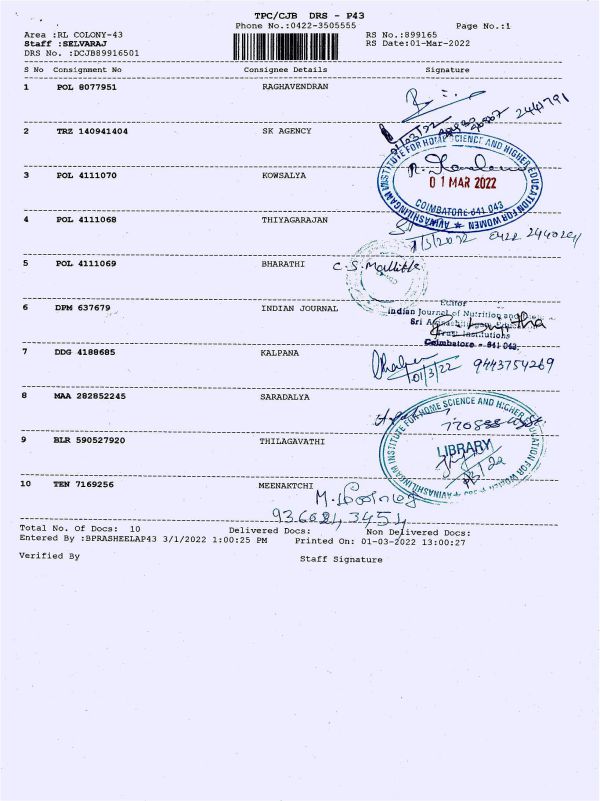 TPC/CJB DRS - P43
Phone No.:0422-3505555
Page No.:1
Area :RL COLONY-43
RS No.:899165
Staff :SELVARAJ
RS Date:01-Mar-2022
DRS No. :DCJB89916501
S No Consignment No Consignee Details Signature
1 POL 8077951 RAGHAVENDRAN
2441791
2 TRZ 140941404 SK AGENCY
INSTITUTE FOR HOME SCIENCE AND HIGHER EDUCATION FOR WOMEN ★ AVINASHILINGAM
3 POL 4111070 KOWSALYA
01 MAR 2022
COIMBATORE-641 043
4 POL 4111068 THIYAGARAJAN
1/3/2022 0422 2440241
5 POL 4111069 BHARATHI
C.S. Mallika
6 DPM 637679 INDIAN JOURNAL
Editor
Indian Journal of Nutrition and
Sri
Trust Institutions
Coimbatore - 641 043.
7 DDG 4188685 KALPANA
01/3/22 9443754269
8 MAA 282852245 SARADALYA
INSTITUTE FOR HOME SCIENCE AND HIGHER EDUCATION FOR WOMEN ★ AVINASHILINGAM
9 BLR 590527920 THILAGAVATHI
LIBRARY
10 TEN 7169256 MEENAKTCHI
Total No. Of Docs: 10 Delivered Docs: Non Delivered Docs:
Entered By :BPRASHEELAP43 3/1/2022 1:00:25 PM Printed On: 01-03-2022 13:00:27
Verified By Staff Signature